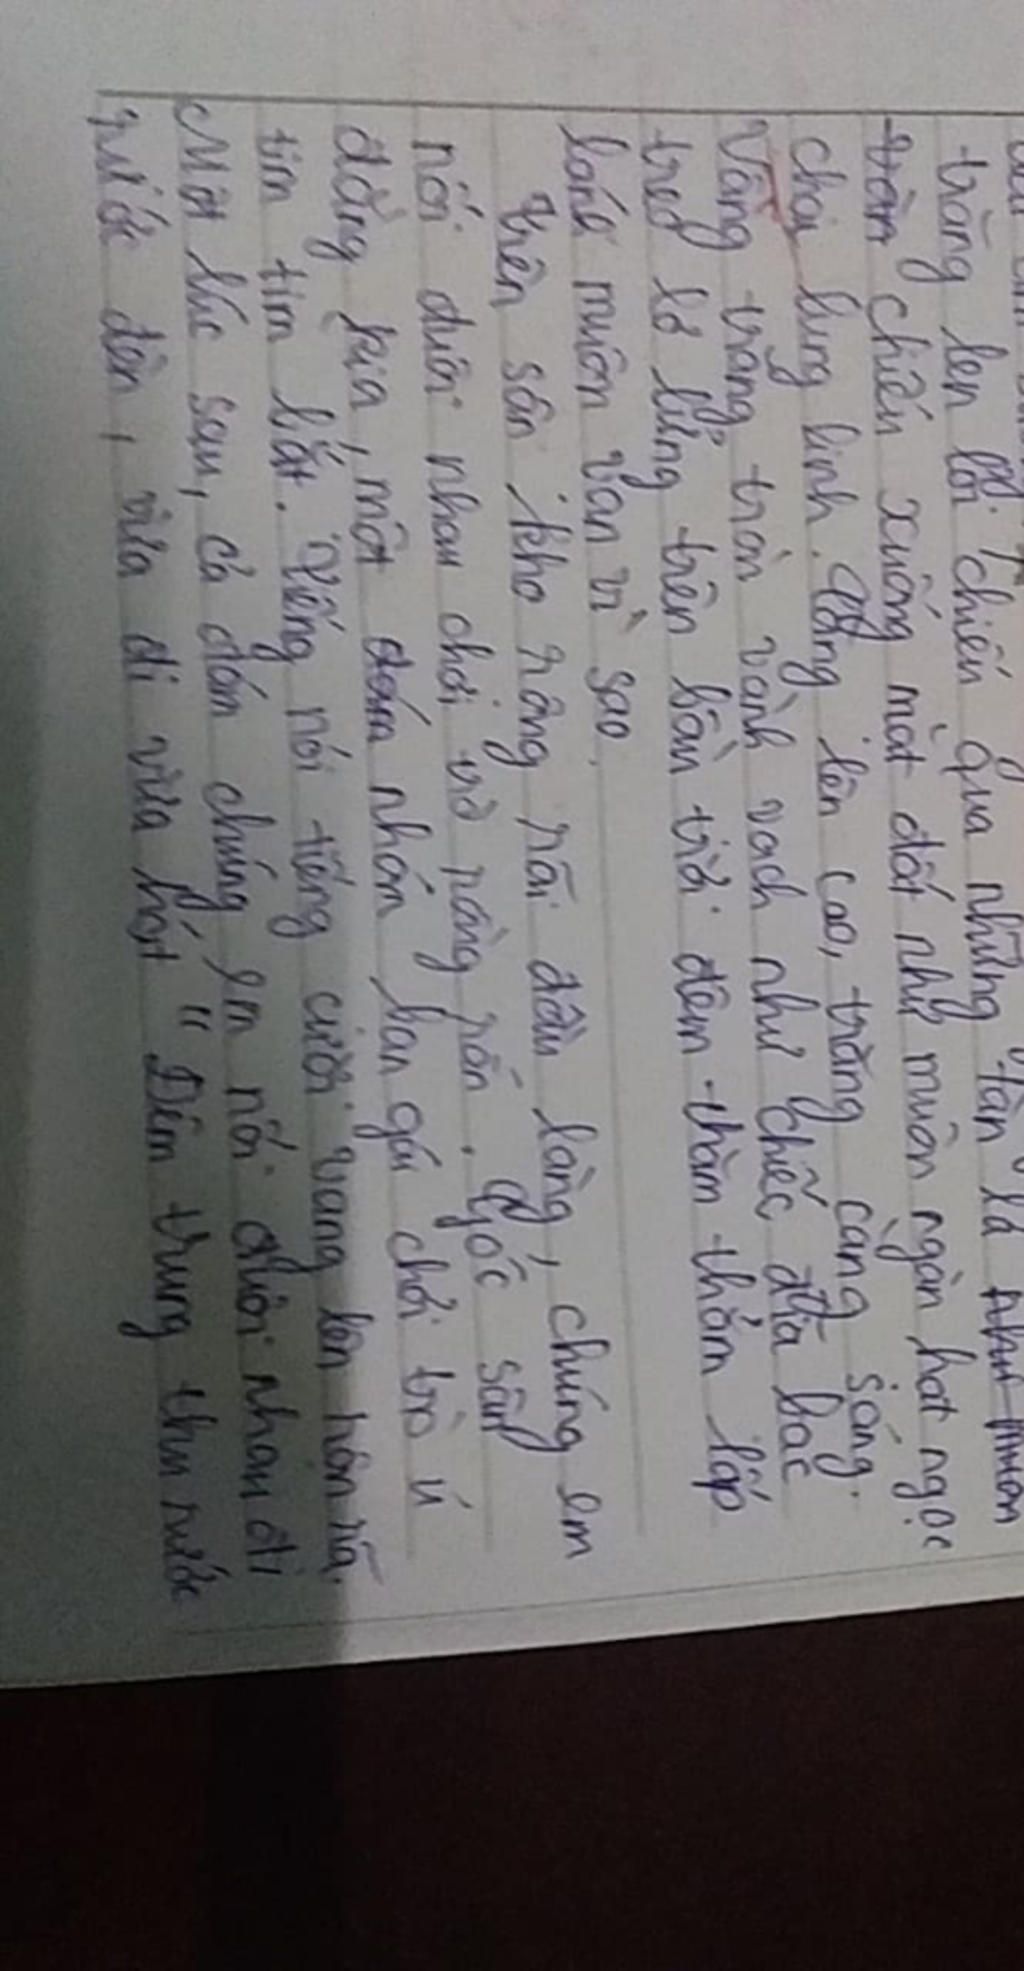 trăng len lỏi chiếu qua những tán lá
tràn chiếu xuống mặt đất như muôn ngàn hạt ngọc
chai lung linh. Càng lên cao, trăng càng sáng.
Vầng trăng tròn vành vạch như chiếc đĩa bạc
treo lơ lửng trên bầu trời đêm thăm thẳm lấp
lánh muôn vàn vì sao.
Trên sân kho rộng rãi đầu làng, chúng em
nối đuôi nhau chơi trò rồng rắn. Góc sân
đằng kia, một đám nhóm bạn gái chơi trò ú
tim tim bắt. Tiếng nói tiếng cười vang lên rộn rã.
Một lúc sau, cả đám chúng em nối đuôi nhau đi
rước đèn, vừa đi vừa hát "Đêm trung thu rước